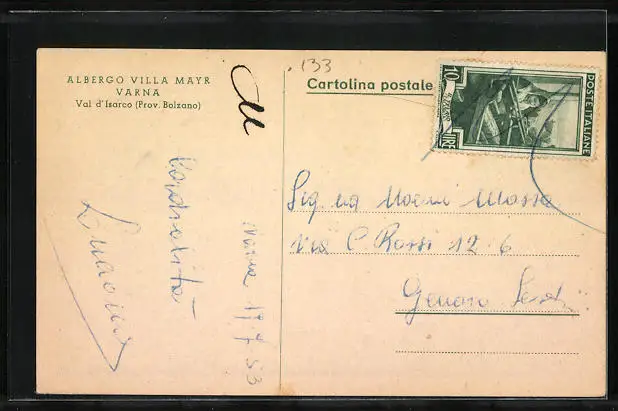 ALBERGO VILLA MAYR
VARNA
Val d'Isarco (Prov. Bolzano)
133
Cartolina postale
10
LIRE
POSTE ITALIANE
Cordialità
Varna 17.7.53
Sig.na Noemi Massa
Via C. Rossi 12.6
Genova